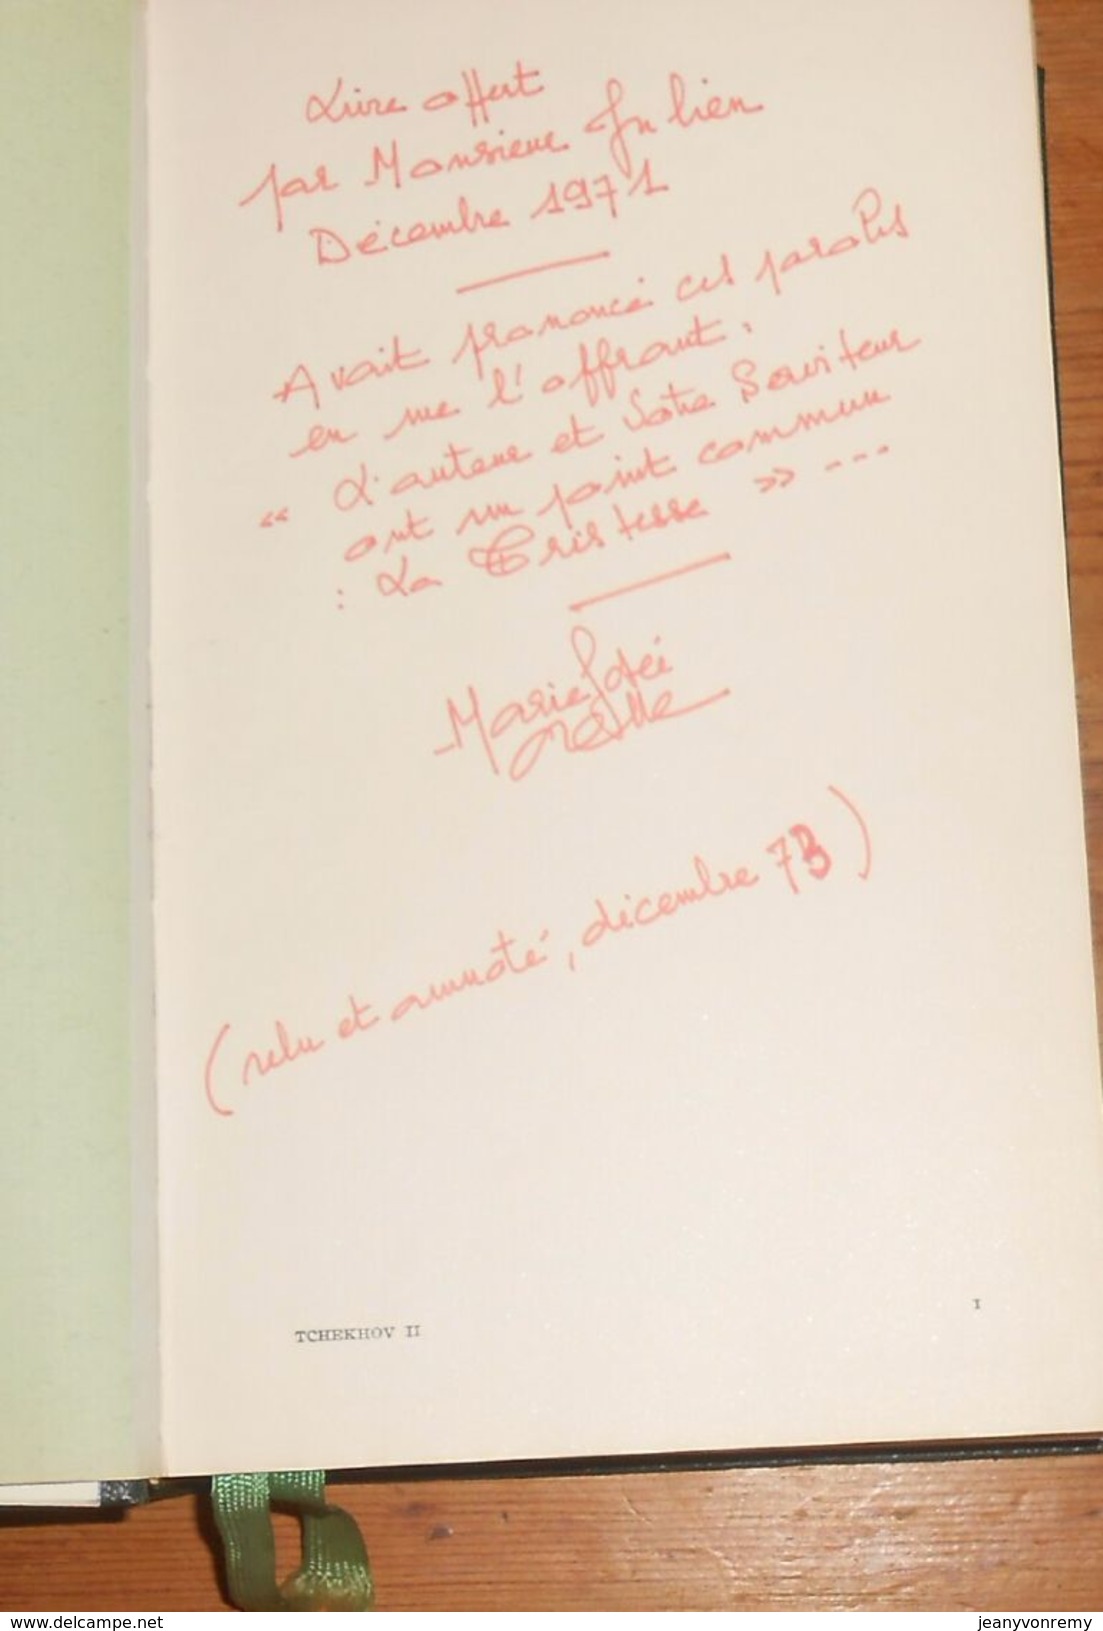 Livre offert
par Monsieur Julien
Décembre 1971
Avait prononcé ces paroles
en me l'offrant :
« L'auteur et Votre Serviteur
ont un point commun
: La Tristesse » ---
Marie
(relu et annoté, décembre 73)
TCHEKHOV II
1
www.delcampe.net
jeanyvonremy